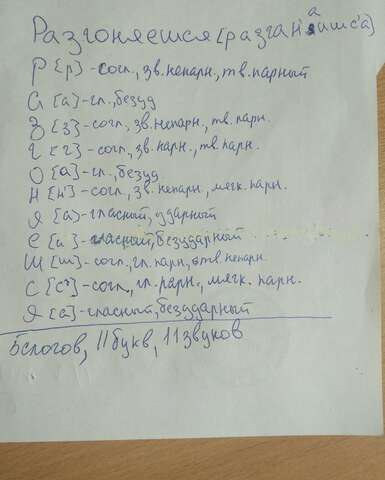 Разгоняешся [разган'аишс'а]
Р [р] - согл., зв. непарн., тв. парный
А [а] - гл., безуд
З [з] - согл., зв. непарн., тв. парн.
Г [г] - согл., зв. парн., тв. парн.
О [а] - гл., безуд.
Н [н'] - согл., зв. непарн., мягк. парн.
Я [а] - гласный, ударный
Е [и] - гласный, безударный
Ш [ш] - согл., гл. парн., тв. непарн.
С [с'] - согл., гл. парн., мягк. парн.
Я [а] - гласный, безударный
5слогов, 11букв, 11звуков